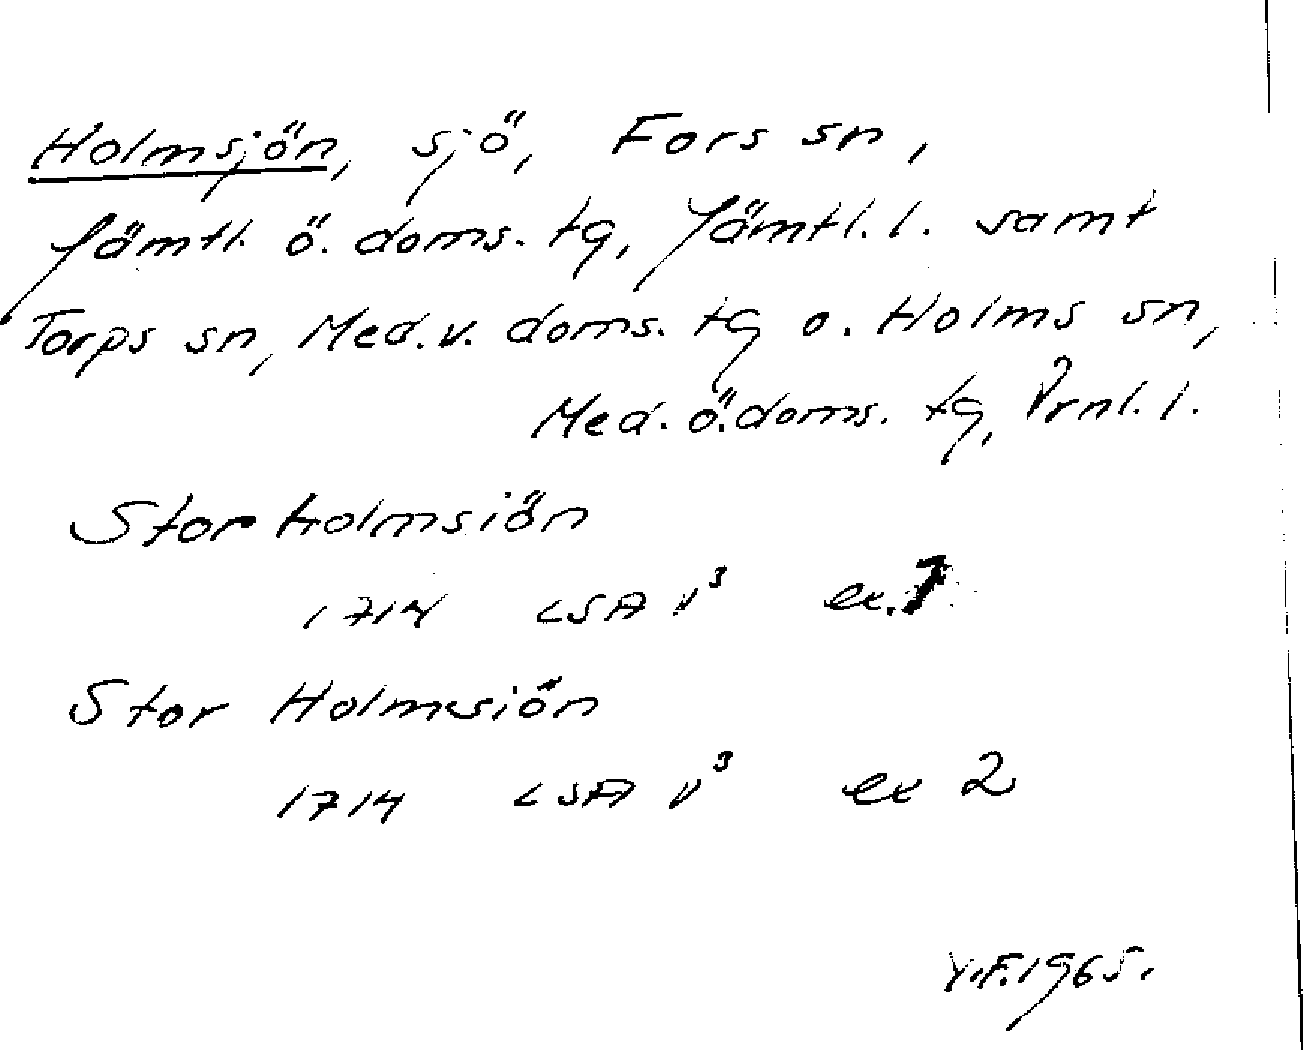 Holmsjön, sjö, Fors sn,
Jämtl. ö. doms. tg, Jämtl. l. samt
Torps sn, Med. v. doms. tg o. Holms sn,
Med. ö. doms. tg, Vrnl. l.
Storholmsiön
1714 LSA V³ ex. 1
Stor Holmsiön
1714 LSA V³ ex 2
Y.F. 1965.